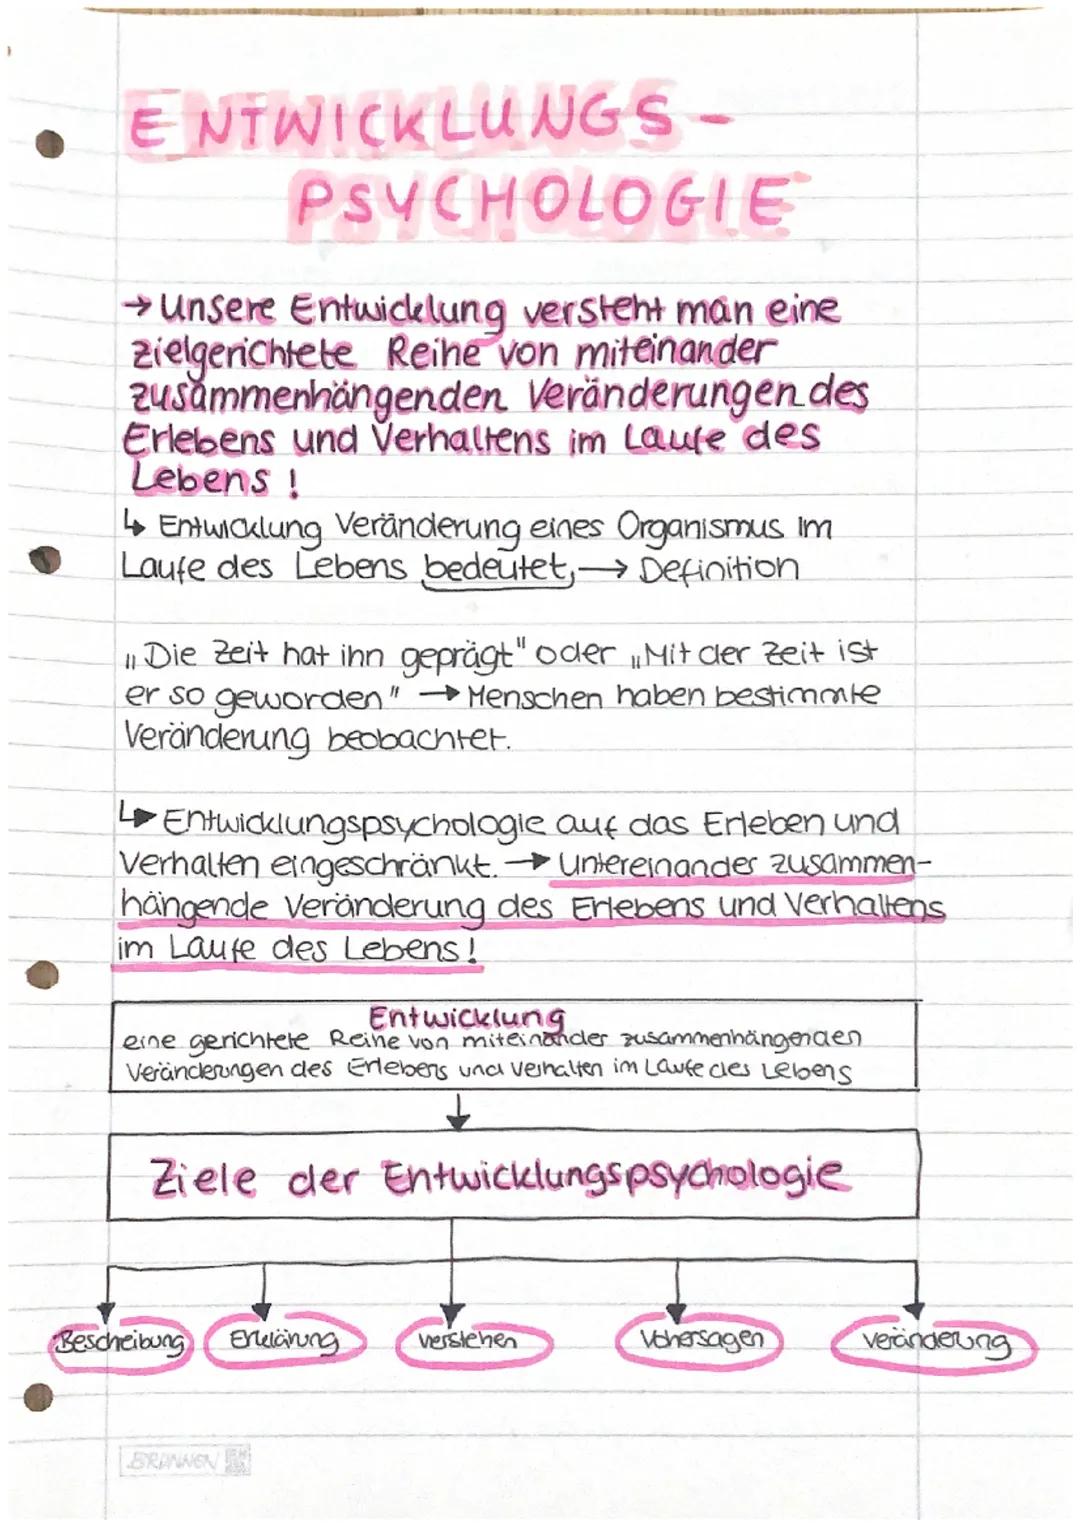 ENTWICKLUNGS-
PSYCHOLOGIE
→ Unsere Entwicklung versteht man eine
zielgerichtete Reihe von miteinander
zusammenhängenden Veränderungen des
Erlebens und Verhaltens im Laufe des
Lebens!
↳ Entwicklung Veränderung eines Organismus im
Laufe des Lebens bedeutet, → Definition
„Die Zeit hat ihn geprägt" oder „Mit der Zeit ist
er so geworden" → Menschen haben bestimmte
Veränderung beobachtet.
↳ Entwicklungspsychologie auf das Erleben und
Verhalten eingeschränkt. → Untereinander zusammen-
hängende Veränderung des Erlebens und Verhaltens
im Laufe des Lebens!
Entwicklung
eine gerichtete Reihe von miteinander zusammenhängenden
Veränderungen des Erlebens und Verhalten im Laufe des Lebens
Ziele der Entwicklungspsychologie
Bescheibung Erklärung verstehen Vohersagen Veränderung
BRUNNEN